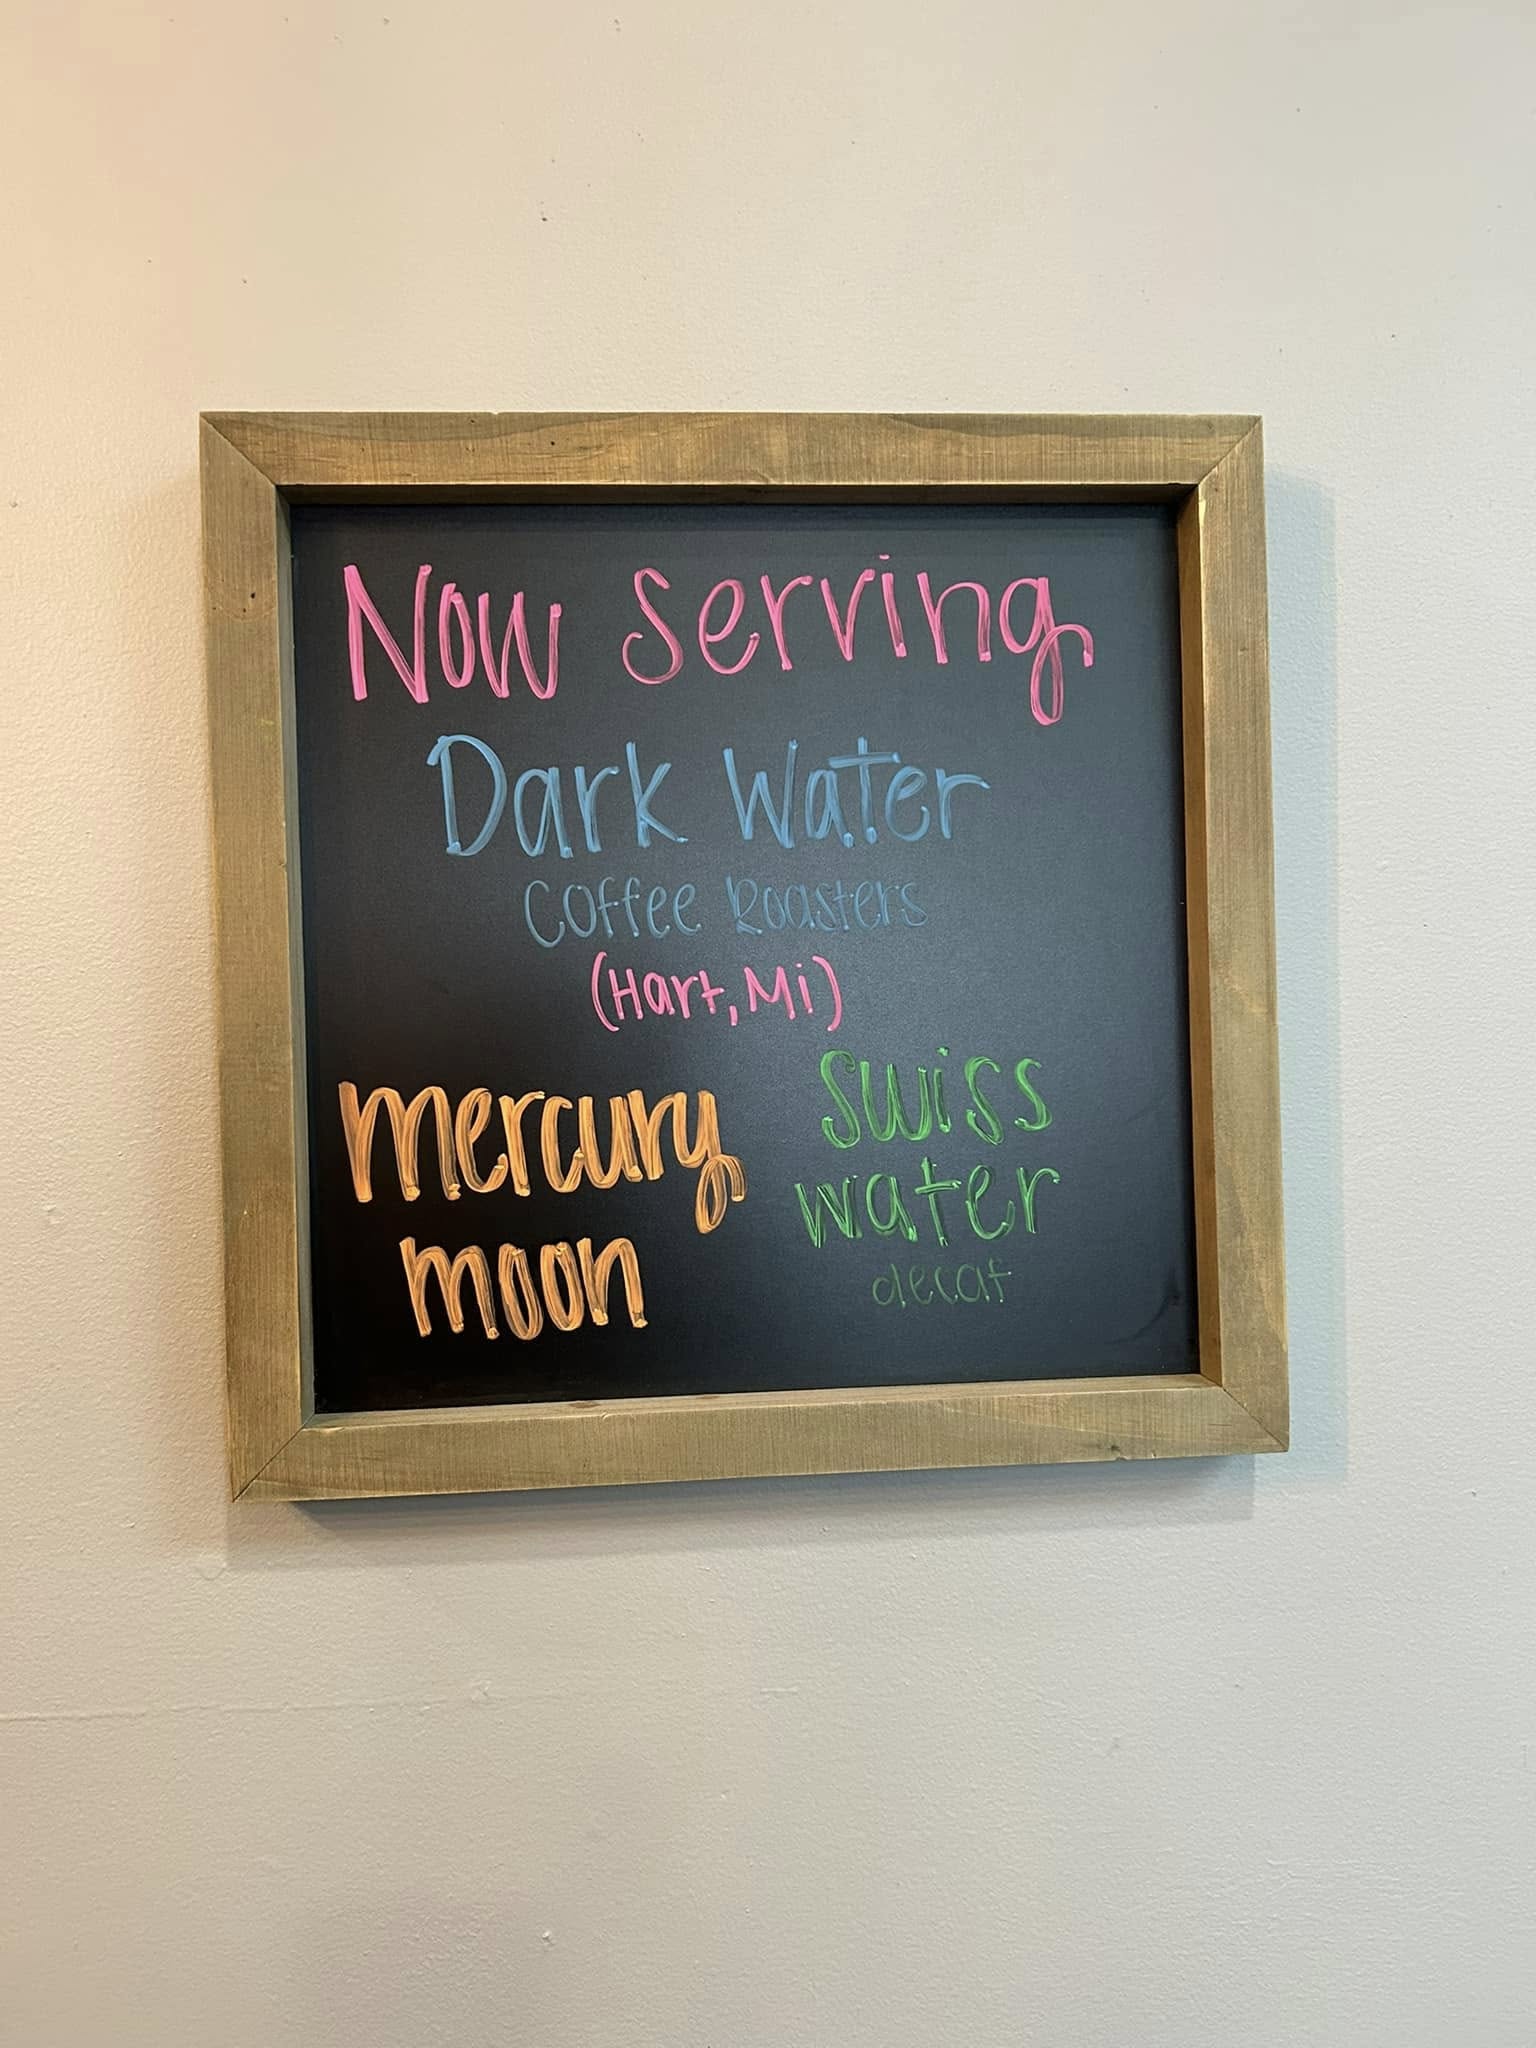 Now Serving
Dark Water
Coffee Roasters
(Hart, Mi)
mercury
moon
swiss
water
decaf